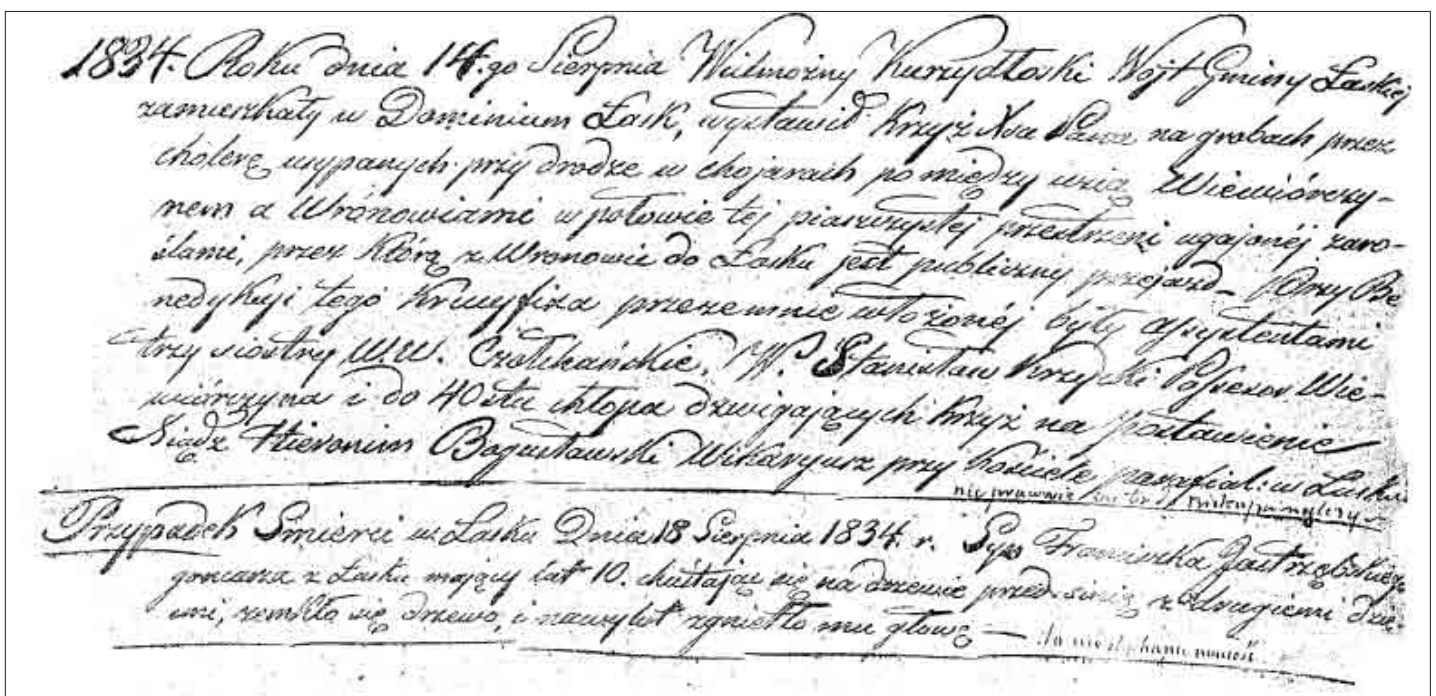 1834. Roku dnia 14.go Sierpnia Wielmożny Kurzydłoski Wojt Gminy Łaskiej
zamieszkały w Dominium Łask, wystawił Krzyż Xsa Pana na grobach przez
cholerę usypanych przy drodze w chojarach pomiędzy wsią Wiewiórczy-
nem a Wronowiami w połowie tej piasczystej przestrzeni ugajonéj zaro-
ślami, przez którą z Wronowic do Łasku jest publiczny przejazd – Przy Be
nedykcyi tego Krucyfixa przezemnie włożonéj były assystentami
trzy siostry W.W. Czołchańskie, W. Stanisław Krzycki Possessor Wie-
wiórczyna i do 40stu chłopa dzwigających krzyż na postawienie
Xsiądz Hieronim Bogusławski Wikaryusz przy kościele parafial: w Łasku
nie prawnie
Przypadek Śmierci w Łasku Dnia 18 Sierpnia 1834. r. Syn Franciszka Jastrzębskiego
garncarza z Łasku mający lat 10. chuśtając się na drzewie przed sinią z drugiemi dzie-
mi, zemkło się drzewo, i nawylot zgniotło mu głowę –
to niesłychana nowość.